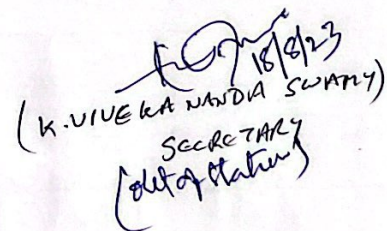 18/8/23
(K. VIVEKANANDA SWAMY)
SECRETARY
(out of station)